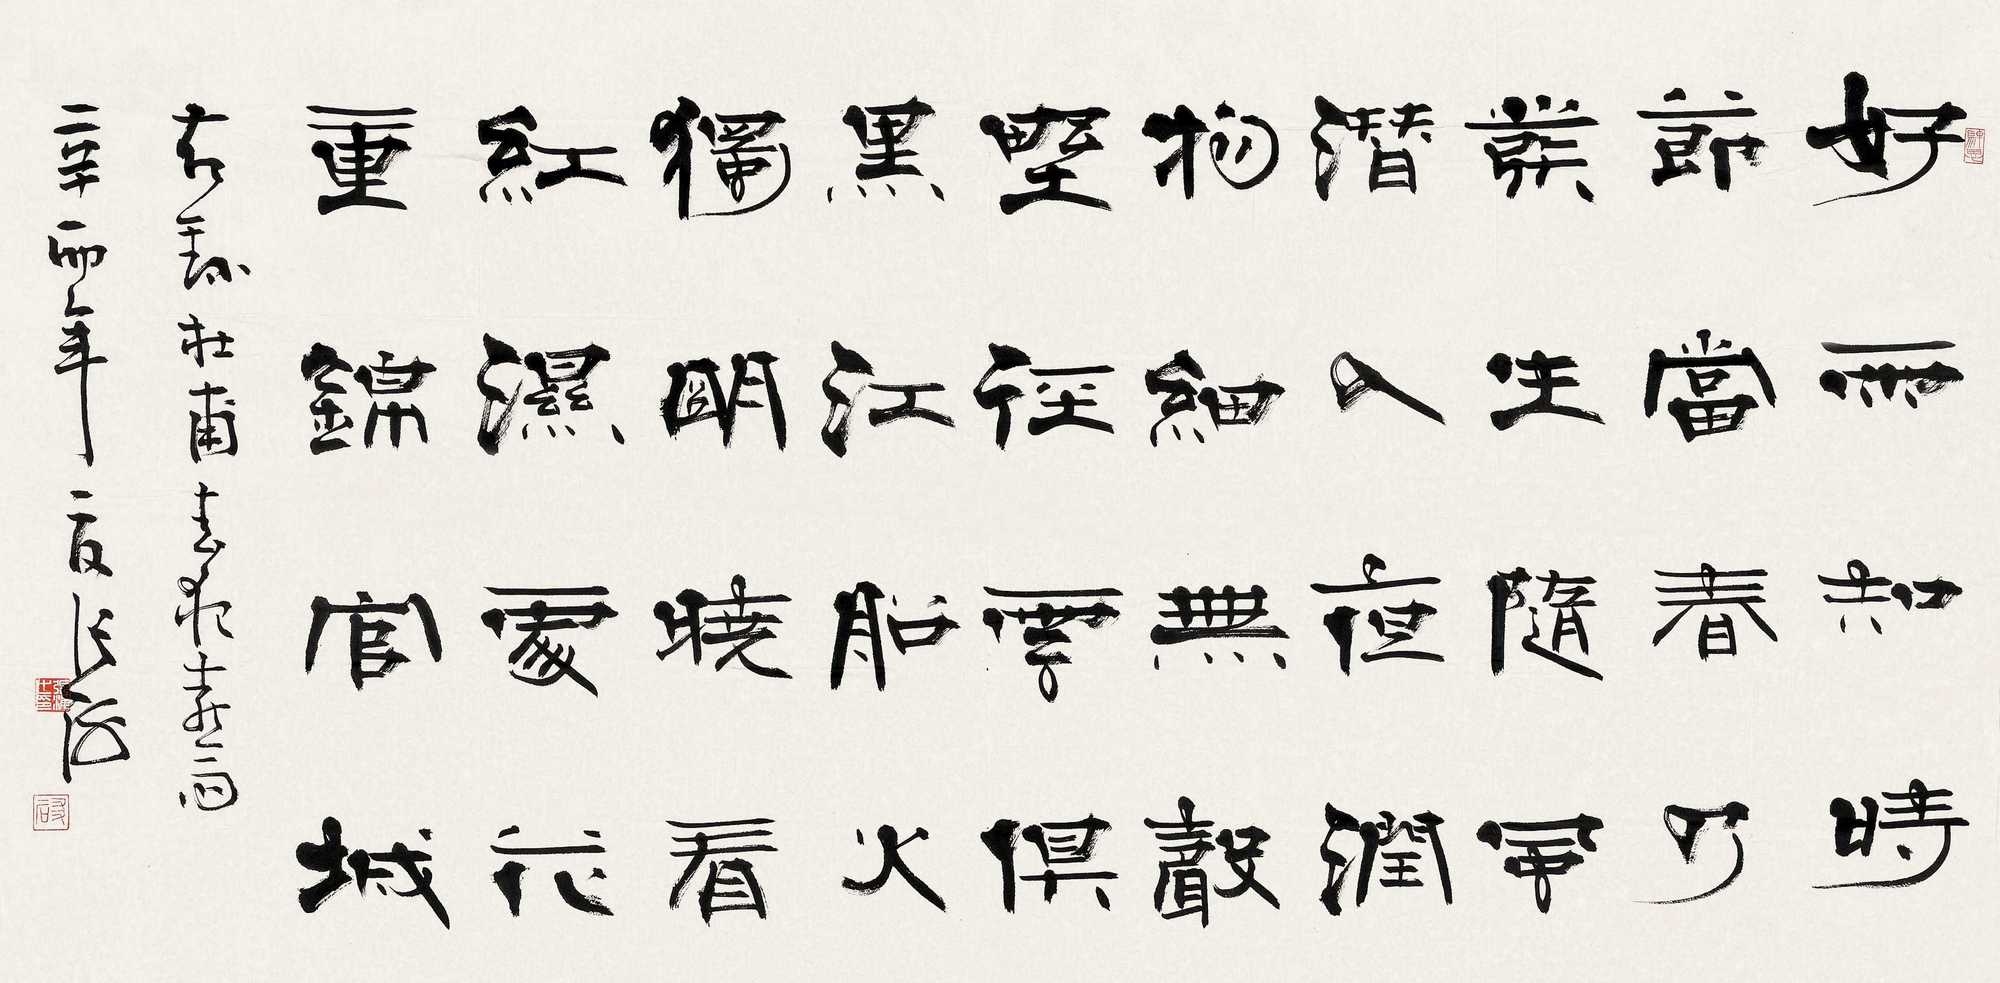 好雨知時
節當春乃
發生隨風
潛入夜潤
物細無聲
野徑雲俱
黑江船火
獨明曉看
紅濕處花
重錦官城
右録杜甫春夜喜雨
年夏張海